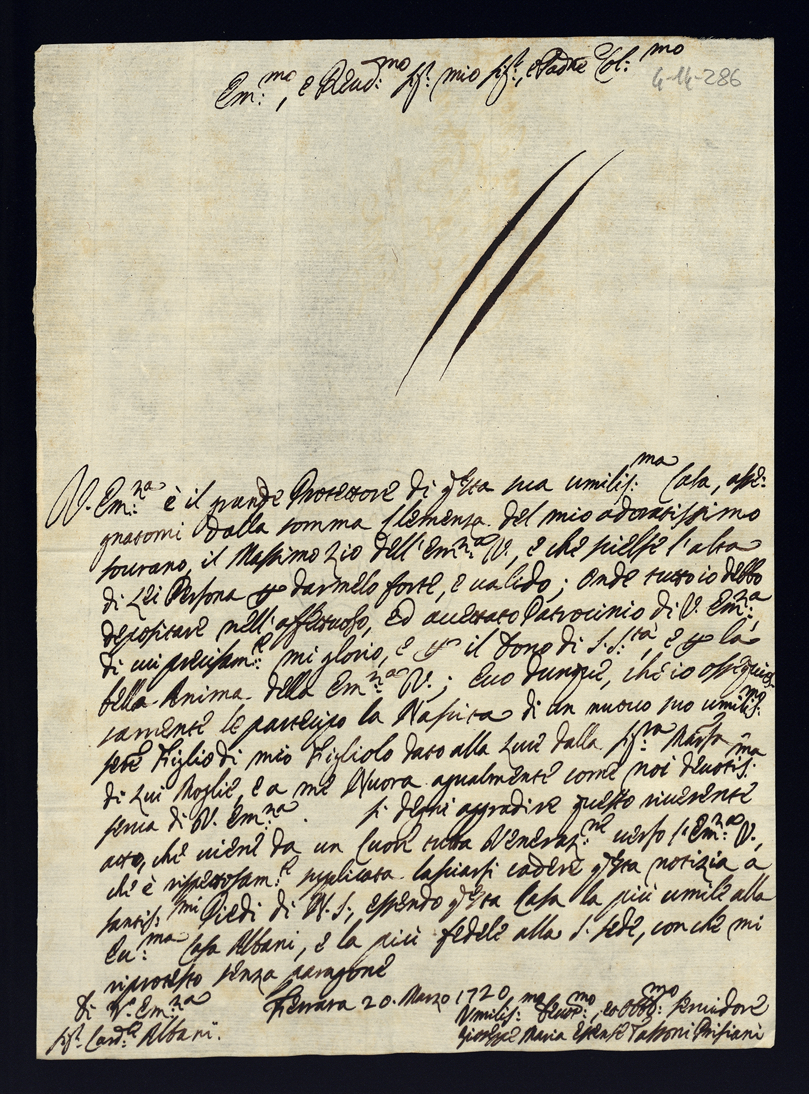 Em:mo, e Reud:mo Sig:r mio Sig:r, e Padre Col:mo
4-14-286
V. Em:za è il grande Protettore di q'sta sua umilis:ma Casa, asse:
gnatomi dalla somma Clemenza del mio adoratissimo
sourano, il Massimo Zio dell'Em:za V., e che scielse l'alta
di Lei Persona per darmelo forte, e ualido; Onde tutto io debbo
depositare nell'affettuoso, ed accertato Patrocinio di V. Em:za,
di cui precisam:e mi glorio, e per il Dono di S. S:tà, e per la
bella Anima della Em:za V.; Ecco dunque, che io ossequio-
samente le partecipo la Nascita di un nuouo suo umilis:mo
seruo Figlio di mio Figliolo dato alla Luce dalla Sig:ra March:a
di Lui Moglie, e a me Nuora ugualmente come noi deuotis:ma
serua di V. Em:za. Si degni aggradire questo riuerente
atto, che uiene da un Cuore tutto Veneraz:ne uerso l'Em:za V.,
che è rispettosam:e supplicata lasciarsi cadere q'sta notizia a
santis:mi Piedi di N. S., essendo q'sta Casa la più umile alla
Ecc:ma Casa Albani, e la più fedele alla S. Sede, con che mi
riprotesto senza paragone
Di V. Em:za Ferrara 20. Marzo 1720
Sig:r Card:le Albani.
Vmilis:mo Deuot:mo, ed Obb:mo Seruidore
Gioseppe Maria Estense Tassoni Prisciani